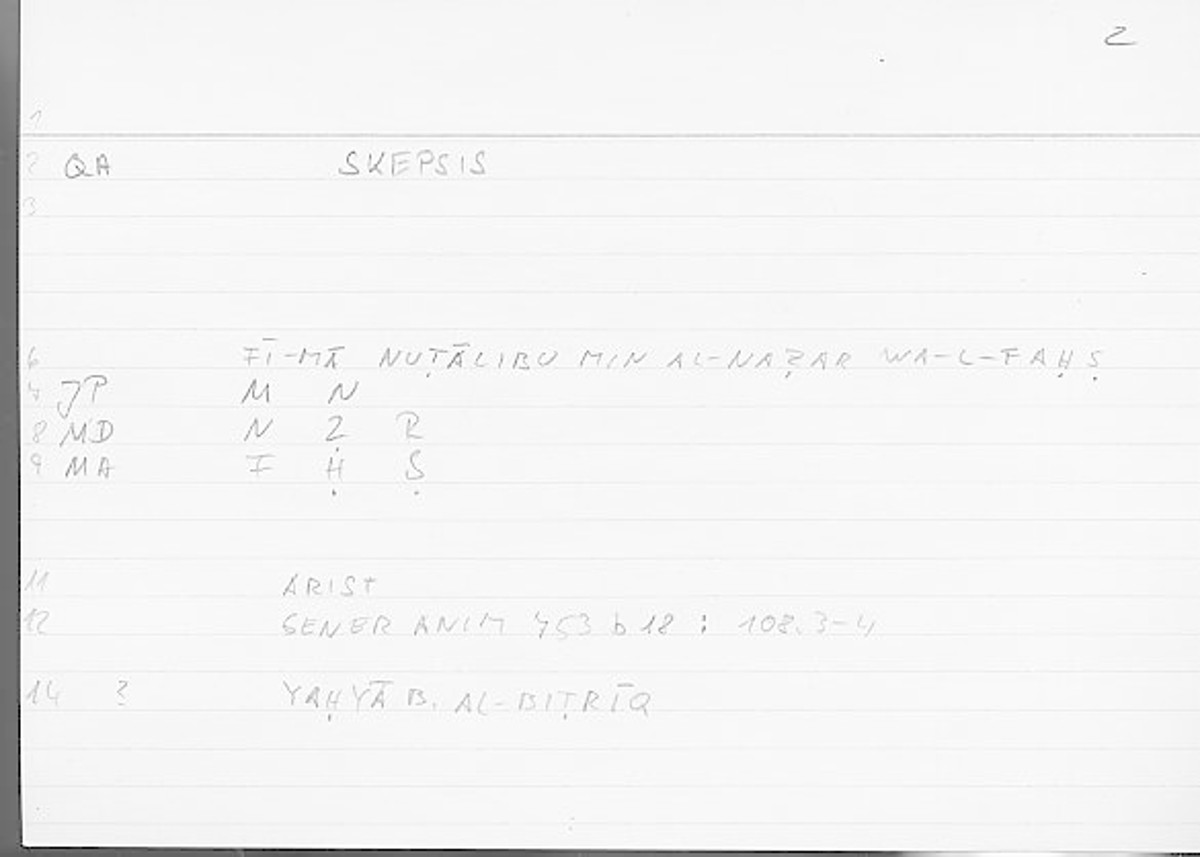 2
1
2 QA SKEPSIS
3
6 FĪ-MĀ NUṬĀLIBU MIN AL-NAẒAR WA-L-FAḤṢ
7 JP M N
8 MD N Ẓ R
9 MA F Ḥ Ṣ
11 ARIST
12 GENER ANIM 753 b 18 : 108.3-4
14 ? YAḤYĀ B. AL-BIṬRĪQ